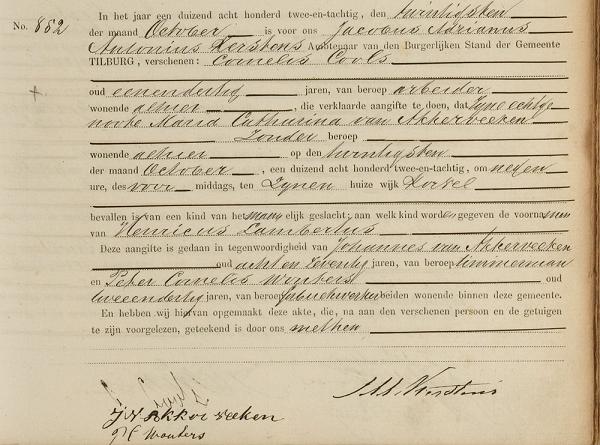 No. 852
In het jaar een duizend acht honderd twee-en-tachtig, den twintigsten
der maand October is voor ons Jacobus Adrianus
Antonius Kerstens Ambtenaar van den Burgerlijken Stand der Gemeente
TILBURG, verschenen: Cornelis Cools
oud eenendertig jaren, van beroep arbeider
wonende alhier, die verklaarde aangifte te doen, dat zijne echtge
noote Maria Catharina van Akkerveeken
Zonder beroep
wonende alhier op den twintigsten
der maand October, een duizend acht honderd twee-en-tachtig, om negen
ure, des voor middags, ten Zijnen huize wijk Korvel
bevallen is van een kind van het mannelijk geslacht; aan welk kind worden gegeven de voornamen
van Henricus Lambertus
Deze aangifte is gedaan in tegenwoordigheid van Johannes van Akkerveeken
oud acht en Zeventig jaren, van beroep timmerman
en Peter Cornelis Wouters oud
tweeendertig jaren, van beroep fabriekwerker beiden wonende binnen deze gemeente.
En hebben wij hiervan opgemaakt deze akte, die, na aan den verschenen persoon en de getuigen
te zijn voorgelezen, geteekend is door ons met hen
C Cools
JAA Kerstens
J V Akker veeken
P C Wouters